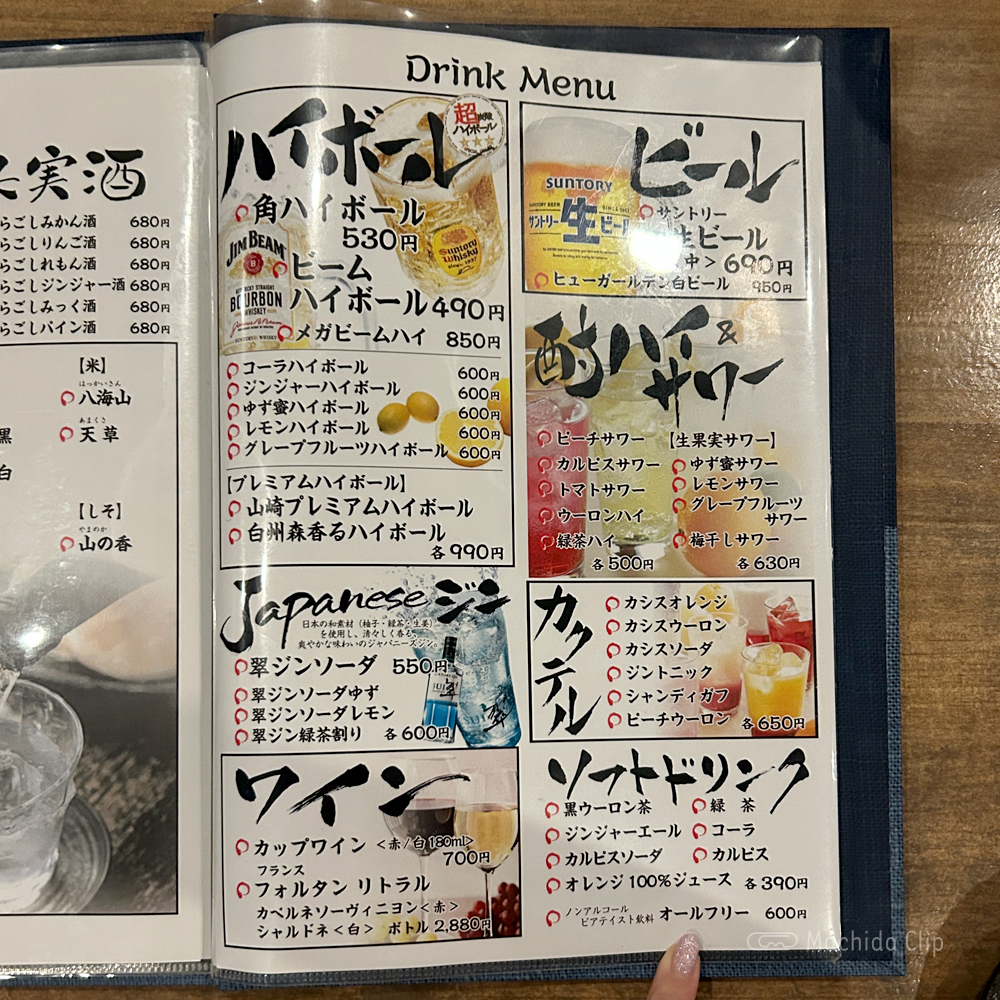 Drink Menu
実酒
らごしみかん酒 680円
らごしりんご酒 680円
らごしれもん酒 680円
らごしジンジャー酒 680円
らごしみっく酒 680円
らごしパイン酒 680円
【米】
はっかいさん
八海山
あまくさ
天草
黒
白
【しそ】
やまのか
山の香
ハイボール
超炭酸
ハイボール
角ハイボール
530円
JIM BEAM
KENTUCKY STRAIGHT
BOURBON
WHISKEY
Suntory
Whisky
since 1937
ビーム
ハイボール 490円
メガビームハイ 850円
コーラハイボール 600円
ジンジャーハイボール 600円
ゆず蜜ハイボール 600円
レモンハイボール 600円
グレープフルーツハイボール 600円
【プレミアムハイボール】
山崎プレミアムハイボール
白州森香るハイボール
各990円
Japanese ジン
日本の和素材（柚子・緑茶・生姜）
を使用し、清々しく香る、
爽やかな味わいのジャパニーズジン。
翠ジンソーダ 550円
翠ジンソーダゆず
翠ジンソーダレモン
翠ジン緑茶割り 各600円
SUI
翠
ワイン
カップワイン ＜赤/白 180ml＞
700円
フランス
フォルタン リトラル
カベルネソーヴィニヨン＜赤＞
シャルドネ＜白＞ ボトル 2,880円
ビール
SUNTORY
SUNTORY BEER SINCE 1963
サントリー生ビール
サントリー
生ビール
中＞690円
ヒューガールデン白ビール 950円
酎ハイ&
サワー
ピーチサワー
カルピスサワー
トマトサワー
ウーロンハイ
緑茶ハイ
各500円
【生果実サワー】
ゆず蜜サワー
レモンサワー
グレープフルーツ
サワー
梅干しサワー
各630円
カクテル
カシスオレンジ
カシスウーロン
カシスソーダ
ジントニック
シャンディガフ
ピーチウーロン 各650円
ソフトドリンク
黒ウーロン茶 緑 茶
ジンジャーエール コーラ
カルピスソーダ カルピス
オレンジ100%ジュース 各390円
ノンアルコール
ビアテイスト飲料 オールフリー 600円
Machida Clip